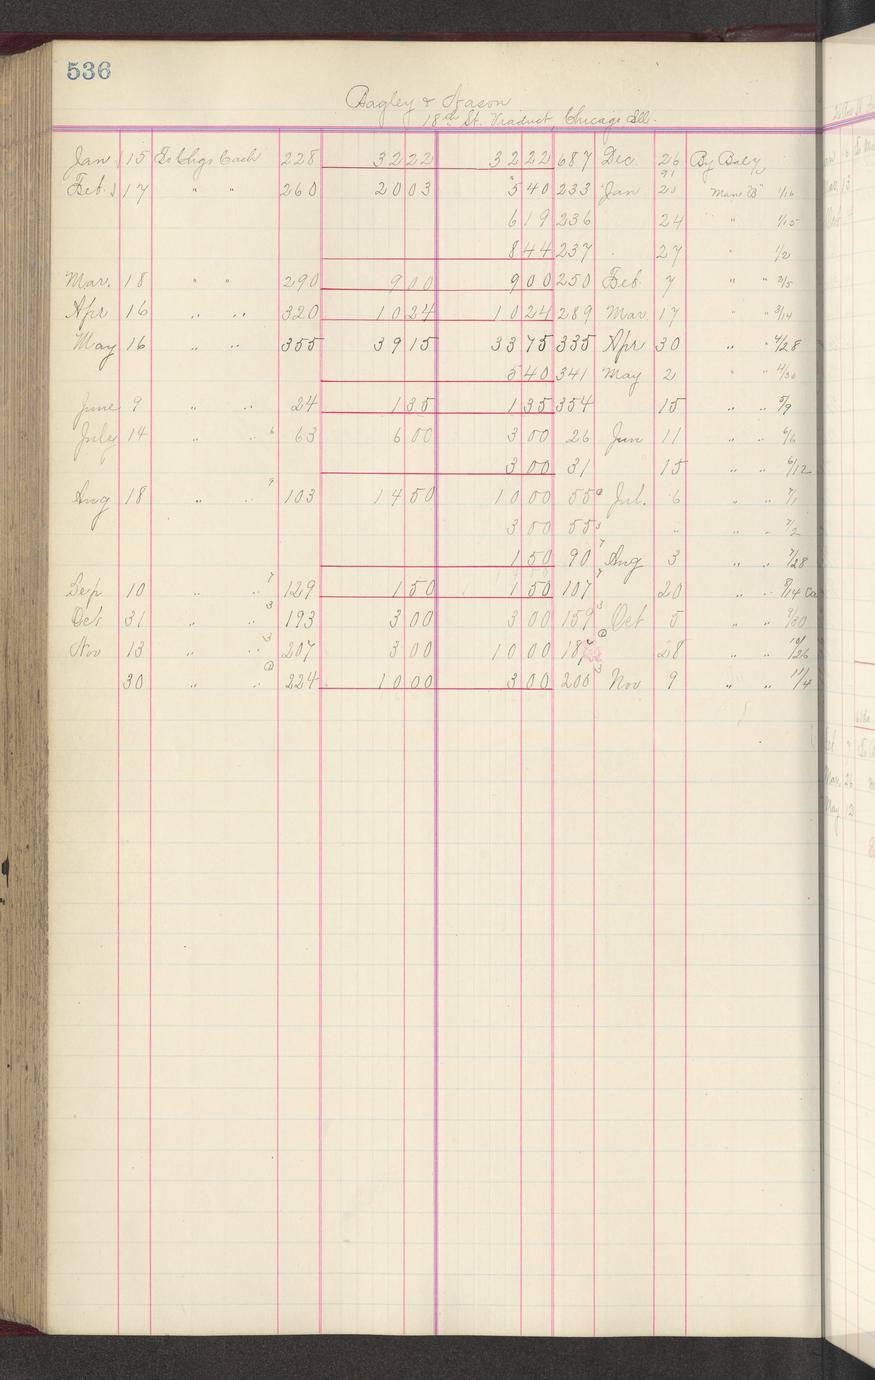 536
Bagley & Nason
18th St. Viaduct, Chicago Ill.
Jan 15 To Chgs Cash 228 32 22 32 22 687 Dec. 26 By Bal
91
Feb. 17 " " 260 20 03 5 40 233 Jan 20 Man "B" 1/16
6 19 236 24 " 1/15
8 44 237 27 " 1/2
Mar. 18 " " 290 9 00 9 00 250 Feb. 7 " " 2/5
Apr 16 " " 320 10 24 10 24 289 Mar. 17 " " 3/14
May 16 " " 355 39 15 33 75 335 Apr 30 " " 4/28
5 40 341 May 2 " " 4/30
June 9 " " 24 1 35 1 35 354 15 " " 5/9
July 14 " " 6 63 6 00 3 00 26 Jun 11 " " 6/6
3 00 31 15 " " 6/12
Aug 18 " " 9 103 14 50 10 00 55 Jul. 6 " " 7/1
3 00 55 3 " " " 7/2
1 50 90 7 Aug 3 " " 7/28
Sep 10 " " 7 129 1 50 1 50 107 7 20 " " 8/14 Ca
Oct 31 " " 3 193 3 00 3 00 159 3 Oct 5 " " 9/30
Nov 13 " " 3 207 3 00 10 00 187 28 " " 10/26
30 " " 224 10 00 3 00 206 3 Nov 9 " " 11/4
Mar. 26
May 12